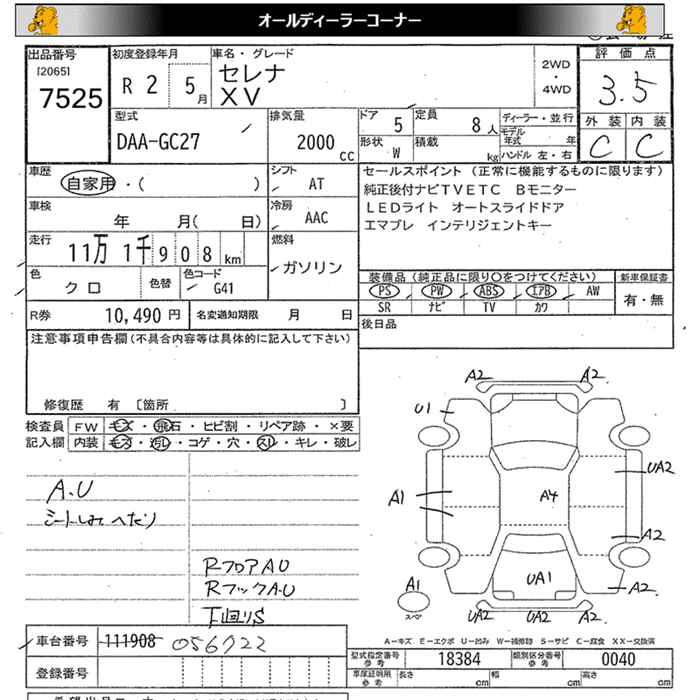 オールディーラーコーナー
出品番号
[2065]
7525
初度登録年月
R 2 5月
車名・グレード
セレナ
XV
2WD
・
4WD
評価点
3.5
外装 内装
C C
型式
DAA-GC27
排気量
2000 cc
ドア 5
定員 8人
形状 W
積載 kg
ディーラー・並行
モデル年式 年
ハンドル 左・右
車歴
自家用・( )
シフト
AT
車検
年 月( 日)
冷房
AAC
走行
11万1千908km
燃料
ガソリン
色
クロ
色替
色コード
G41
R券 10,490円
名変通知期限 月 日
セールスポイント (正常に機能するものに限ります)
純正後付ナビTVETC Bモニター
LEDライト オートスライドドア
エマブレ インテリジェントキー
装備品(純正品に限り○をつけてください)
PS PW ABS エアB AW
SR ナビ TV カワ
新車保証書
有・無
後日品
注意事項申告欄(不具合内容等は具体的に記入して下さい)
修復歴 有 [箇所 ]
検査員 FW キズ・飛石・ヒビ割・リペア跡・×要
記入欄 内装 キズ・汚レ・コゲ・穴・スレ・キレ・破レ
A.U
シートしみ へたり
RフロアAU
RフックAU
下回りS
車台番号 111908 056722
登録番号
A2 A2
U1
A1
A4
UA2
A2
A1
スペア
UA1
A2
UA2 UA2 A2
A-キズ E-エクボ U-凹み W-補修跡 S-サビ C-腐食 XX-交換済
型式指定番号
参考
18384
類別区分番号
参考
0040
車庫証明用
参考
長さ cm 幅 cm 高さ cm